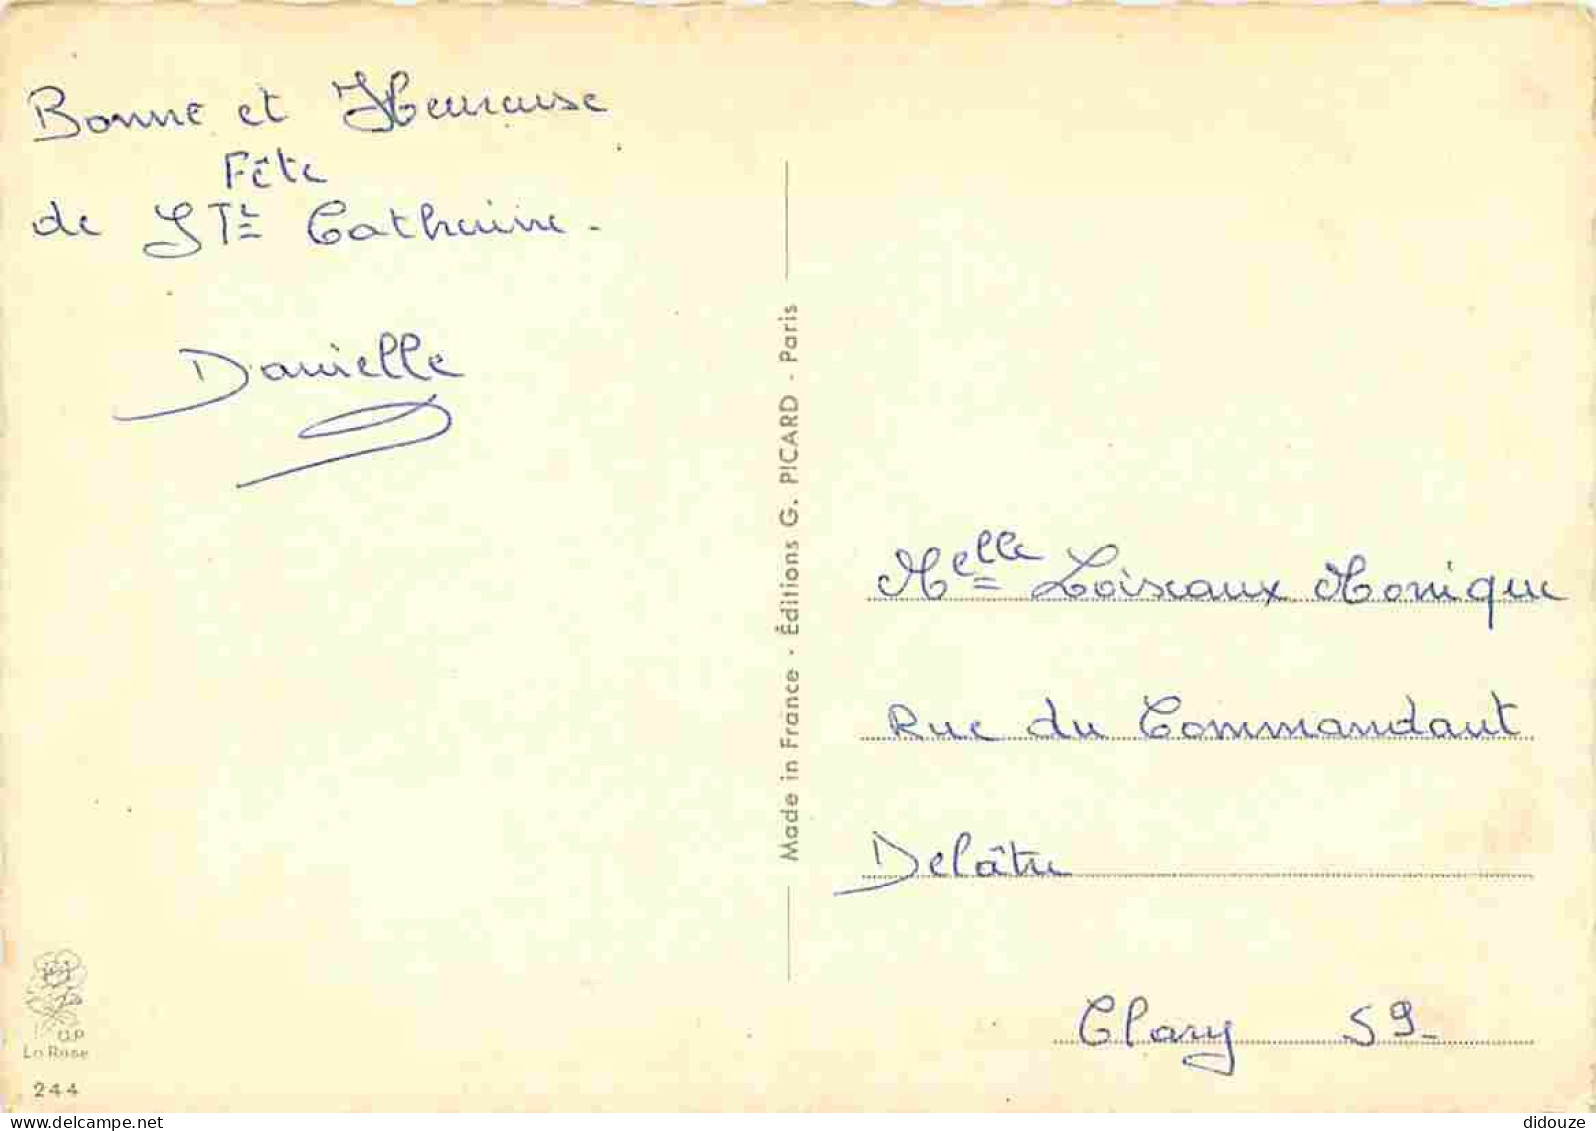 Bonne et Heureuse
Fête
de STE Catherine.
Danielle
Made in France - Éditions G. PICARD - Paris
Melle Loiseaux Monique
Rue du Commandant
Delâtre
Clary 59-
G.P
La Rose
244
www.delcampe.net
didouze